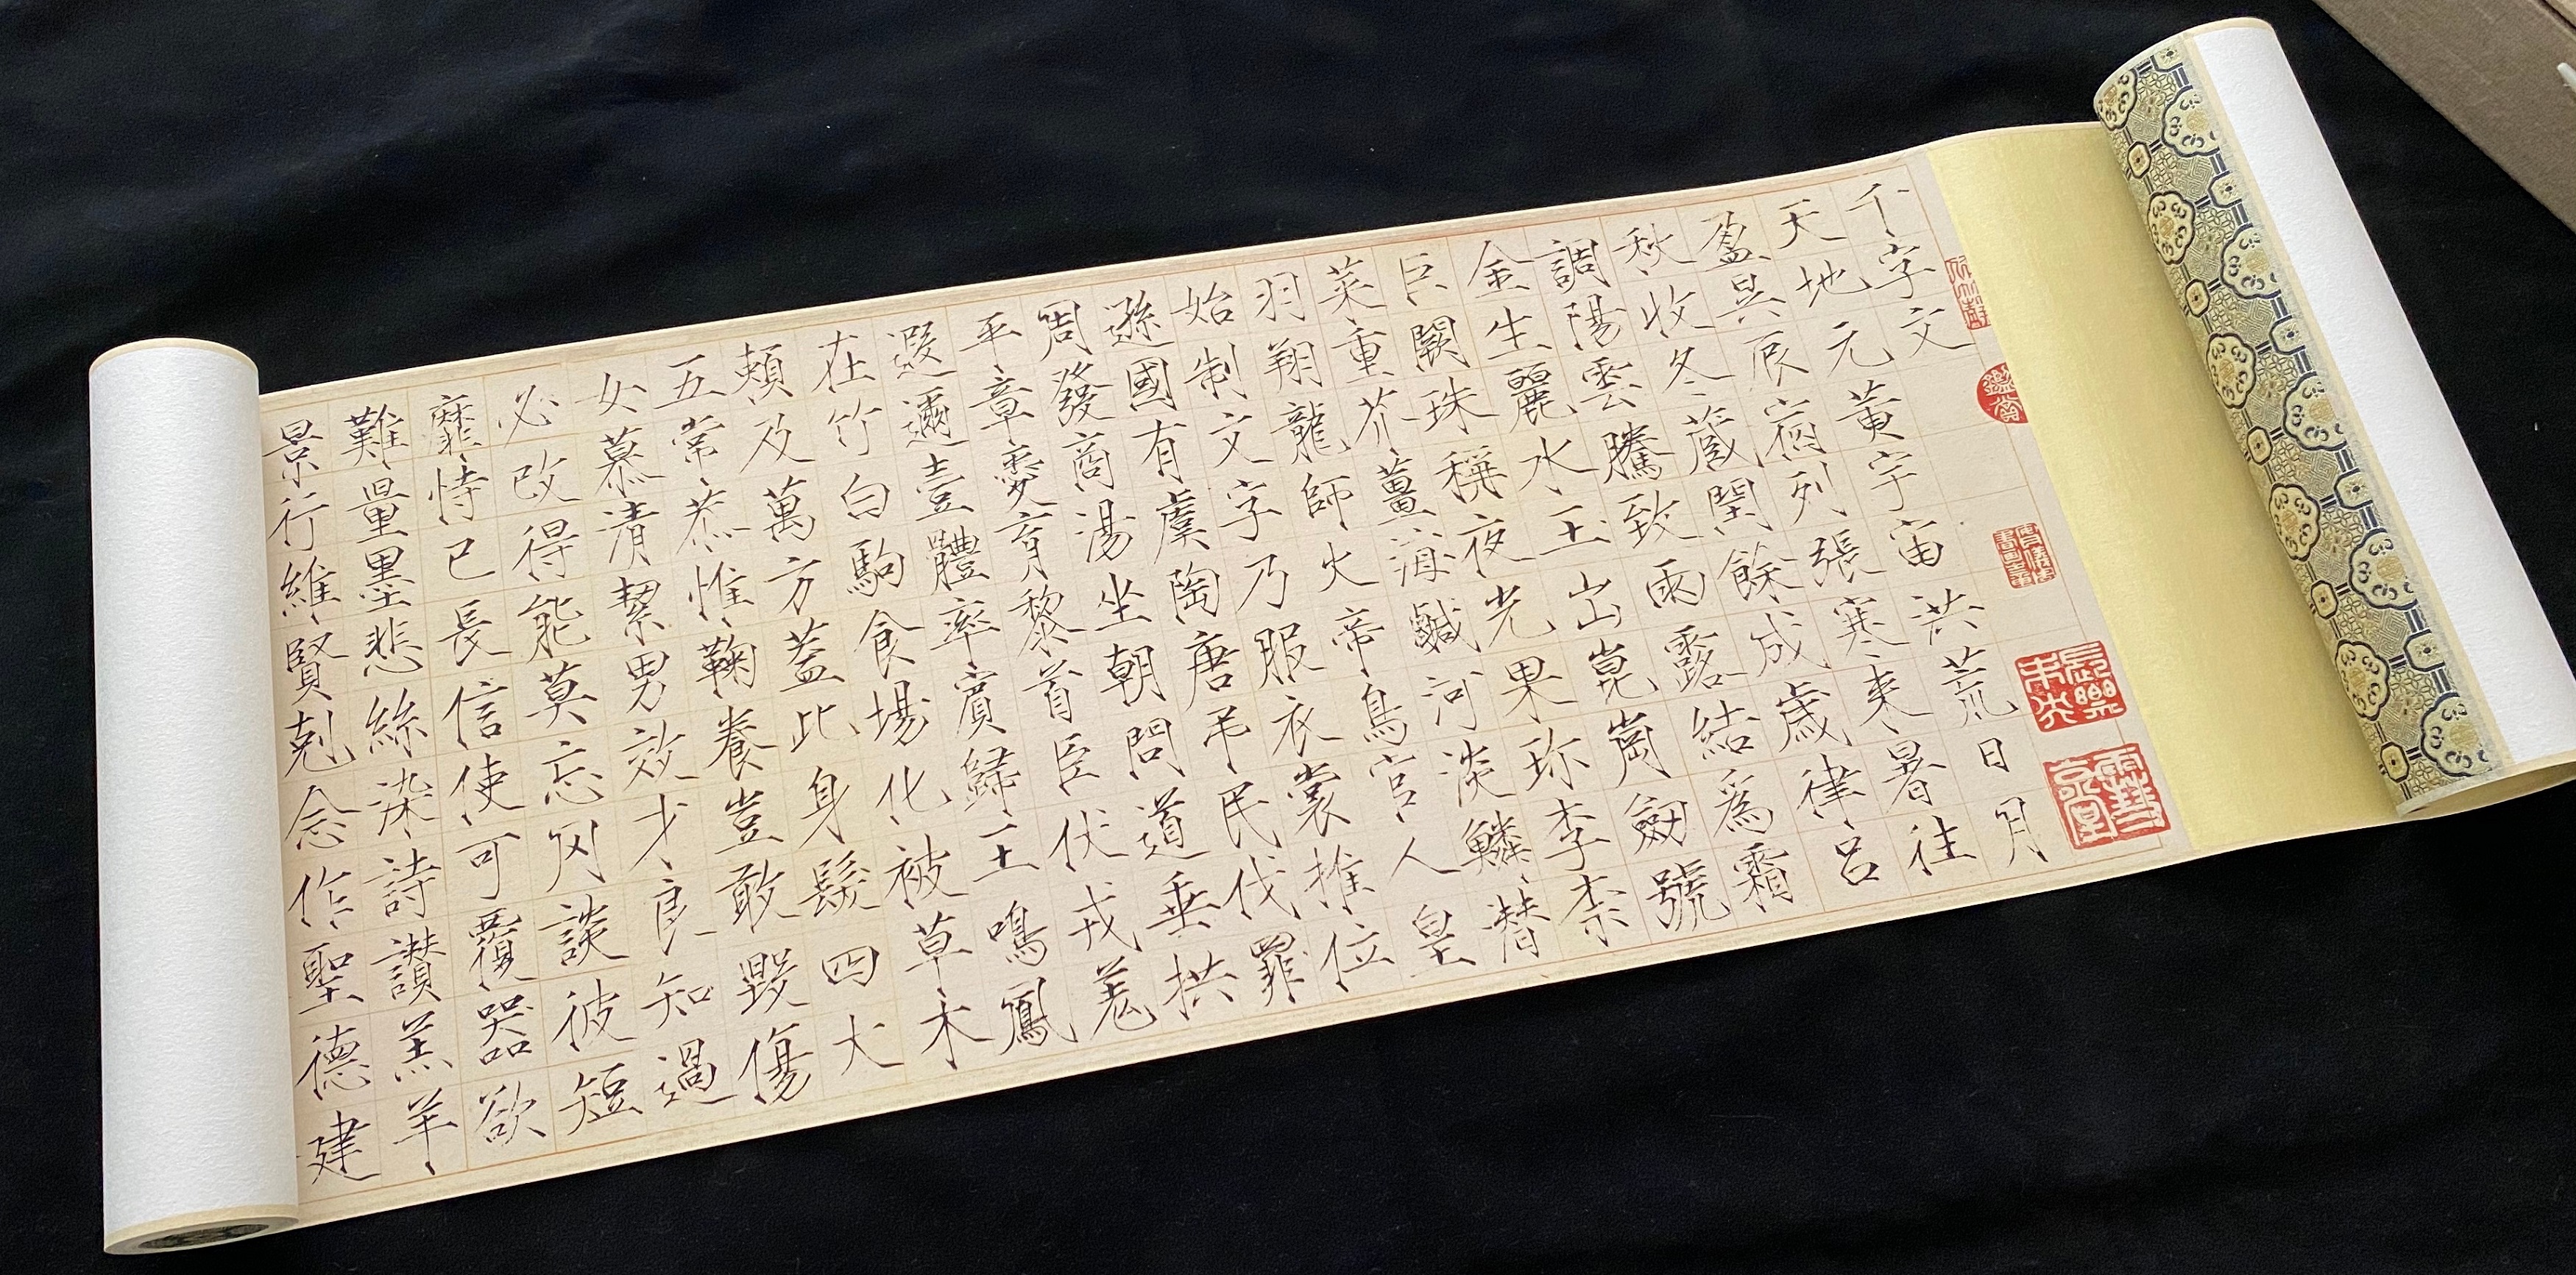 鑑賞
長樂未央
千字文
天地元黃宇宙洪荒日月
盈昃辰宿列張寒来暑往
秋收冬蔵閏餘成歳律呂
調陽雲騰致雨露結為霜
金生麗水玉出崑崗劒號
巨闕珠稱夜光果珎李柰
菜重芥薑海鹹河淡鱗潜
羽翔龍師火帝鳥官人皇
始制文字乃服衣裳推位
遜國有虞陶唐弔民伐罪
周發商湯坐朝問道垂拱
平章愛育黎首臣伏戎羌
遐邇壹體率賓歸王鳴鳳
在竹白駒食場化被草木
頼及萬方蓋此身髮四大
五常恭惟鞠養豈敢毀傷
女慕清絜男效才良知過
必改得能莫忘罔談彼短
靡恃己長信使可覆器欲
難量墨悲絲染詩讃羔羊
景行維賢剋念作聖德建